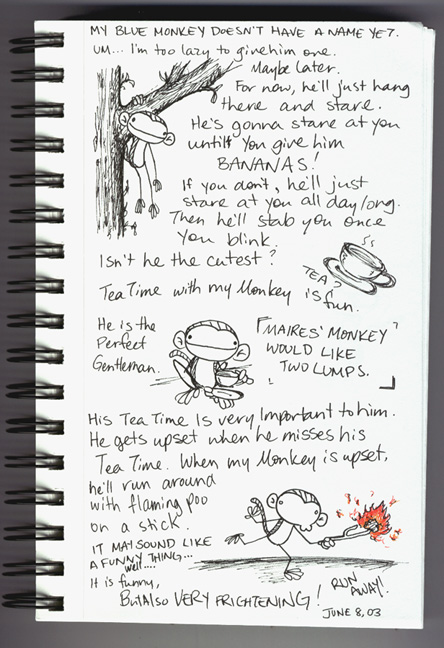 MY BLUE MONKEY DOESN'T HAVE A NAME YET.
UM... I'm too lazy to give him one.
Maybe Later.
For now, he'll just hang
there and stare.
He's gonna stare at you
until you give him
BANANAS!
If you don't, he'll just
stare at you all day long.
Then he'll stab you once
you blink.
Isn't he the cutest?
TEA?
Tea Time with my Monkey is fun.
He is the
Perfect
Gentleman.
"MAIRES' MONKEY
WOULD LIKE
TWO LUMPS.
His Tea Time Is very Important to him.
He gets upset when he misses his
Tea Time. When my Monkey is upset,
he'll run around
with flaming poo
on a stick.
IT MAY SOUND LIKE
A FUNNY THING...
well....
It is funny,
But Also VERY FRIGHTENING!
RUN
AWAY!
JUNE 8, 03